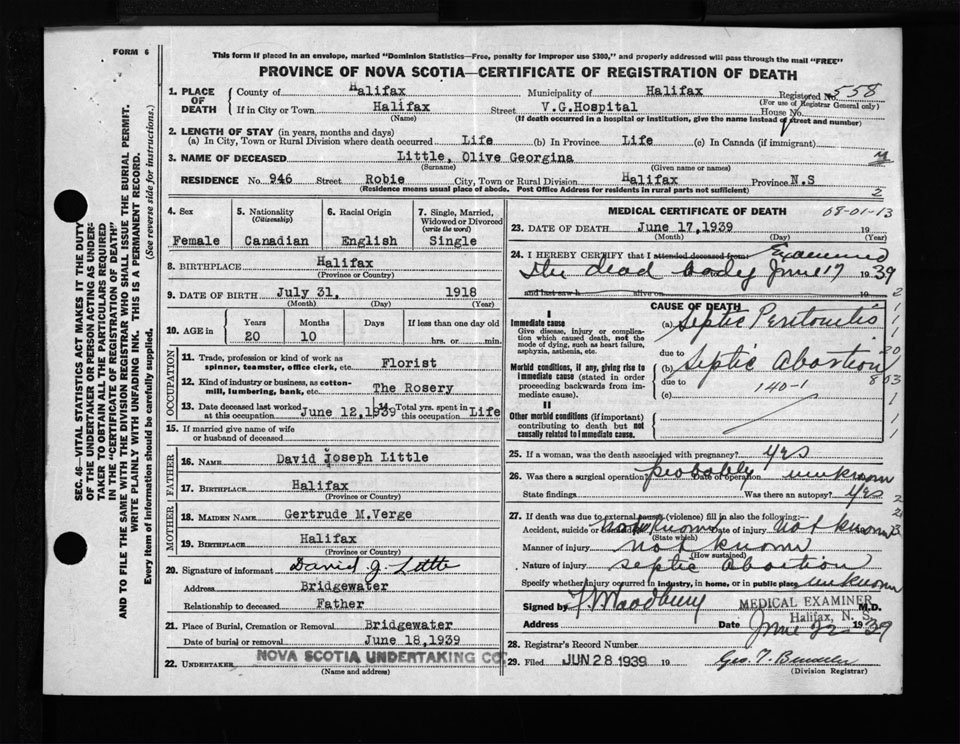 FORM 6
This form if placed in an envelope, marked "Dominion Statistics—Free, penalty for improper use $300," and properly addressed will pass through the mail "FREE"
PROVINCE OF NOVA SCOTIA—CERTIFICATE OF REGISTRATION OF DEATH
SEC. 46—VITAL STATISTICS ACT MAKES IT THE DUTY
OF THE UNDERTAKER OR PERSON ACTING AS UNDER-
TAKER TO OBTAIN ALL THE PARTICULARS REQUIRED
IN THE "CERTIFICATE OF REGISTRATION OF DEATH"
AND TO FILE THE SAME WITH THE DIVISION REGISTRAR WHO SHALL ISSUE THE BURIAL PERMIT.
WRITE PLAINLY WITH UNFADING INK. THIS IS A PERMANENT RECORD.
Every item of information should be carefully supplied. (See reverse side for instructions.)
1. PLACE OF DEATH County of Halifax Municipality of Halifax Registered No. 558
(For use of Registrar General only)
If in City or Town Halifax Street V.G.Hospital House No.
(Name) (If death occurred in a hospital or institution, give the name instead of street and number)
2. LENGTH OF STAY (in years, months and days)
(a) In City, Town or Rural Division where death occurred Life (b) In Province Life (c) In Canada (if immigrant)
3. NAME OF DECEASED Little, Olive Georgina
(Surname) (Given name or names)
RESIDENCE No. 946 Street Robie City, Town or Rural Division Halifax Province N.S
(Residence means usual place of abode. Post Office Address for residents in rural parts not sufficient) 2
4. Sex Female
5. Nationality (Citizenship) Canadian
6. Racial Origin English
7. Single, Married, Widowed or Divorced (write the word) Single
8. BIRTHPLACE Halifax
(Province or Country)
9. DATE OF BIRTH July 31, 1918
(Month) (Day) (Year)
10. AGE in Years 20 Months 10 Days If less than one day old hrs. or min.
OCCUPATION
11. Trade, profession or kind of work as spinner, teamster, office clerk, etc. Florist
12. Kind of industry or business, as cotton-mill, lumbering, bank, etc. The Rosery
13. Date deceased last worked at this occupation June 12,1939 14. Total yrs. spent in this occupation Life
15. If married give name of wife or husband of deceased
FATHER
16. NAME David Joseph Little
17. BIRTHPLACE Halifax
(Province or Country)
MOTHER
18. MAIDEN NAME Gertrude M.Verge
19. BIRTHPLACE Halifax
(Province or Country)
20. Signature of informant David J. Little
Address Bridgewater
Relationship to deceased Father
21. Place of Burial, Cremation or Removal Bridgewater
Date of burial or removal June 18,1939
22. UNDERTAKER NOVA SCOTIA UNDERTAKING CO.
(Name and address)
MEDICAL CERTIFICATE OF DEATH 68-01-13
23. DATE OF DEATH June 17,1939 19
(Month) (Day) (Year)
24. I HEREBY CERTIFY that I attended deceased from: Examined
the dead body June 17 1939
and last saw h alive on 19
CAUSE OF DEATH
I
Immediate cause (a) Septic Peritonitis
Give disease, injury or complication which caused death, not the mode of dying, such as heart failure, asphyxia, asthenia, etc. due to
Morbid conditions, if any, giving rise to immediate cause (stated in order proceeding backwards from immediate cause). (b) Septic Abortion
due to 140-1
(c)
II
Other morbid conditions (if important) contributing to death but not causally related to immediate cause.
25. If a woman, was the death associated with pregnancy? yes
26. Was there a surgical operation? probably Date of operation unknown
State findings Was there an autopsy? yes
27. If death was due to external causes (violence) fill in also the following:—
Accident, suicide or homicide not known Date of injury not known
(State which)
Manner of injury not known
(How sustained)
Nature of injury septic abortion
Specify whether injury occurred in industry, in home, or in public place unknown
Signed by MEDICAL EXAMINER M.D.
Halifax, N. S.
Address Date June 22 1939
28. Registrar's Record Number
29. Filed JUN 28 1939 19
(Division Registrar)